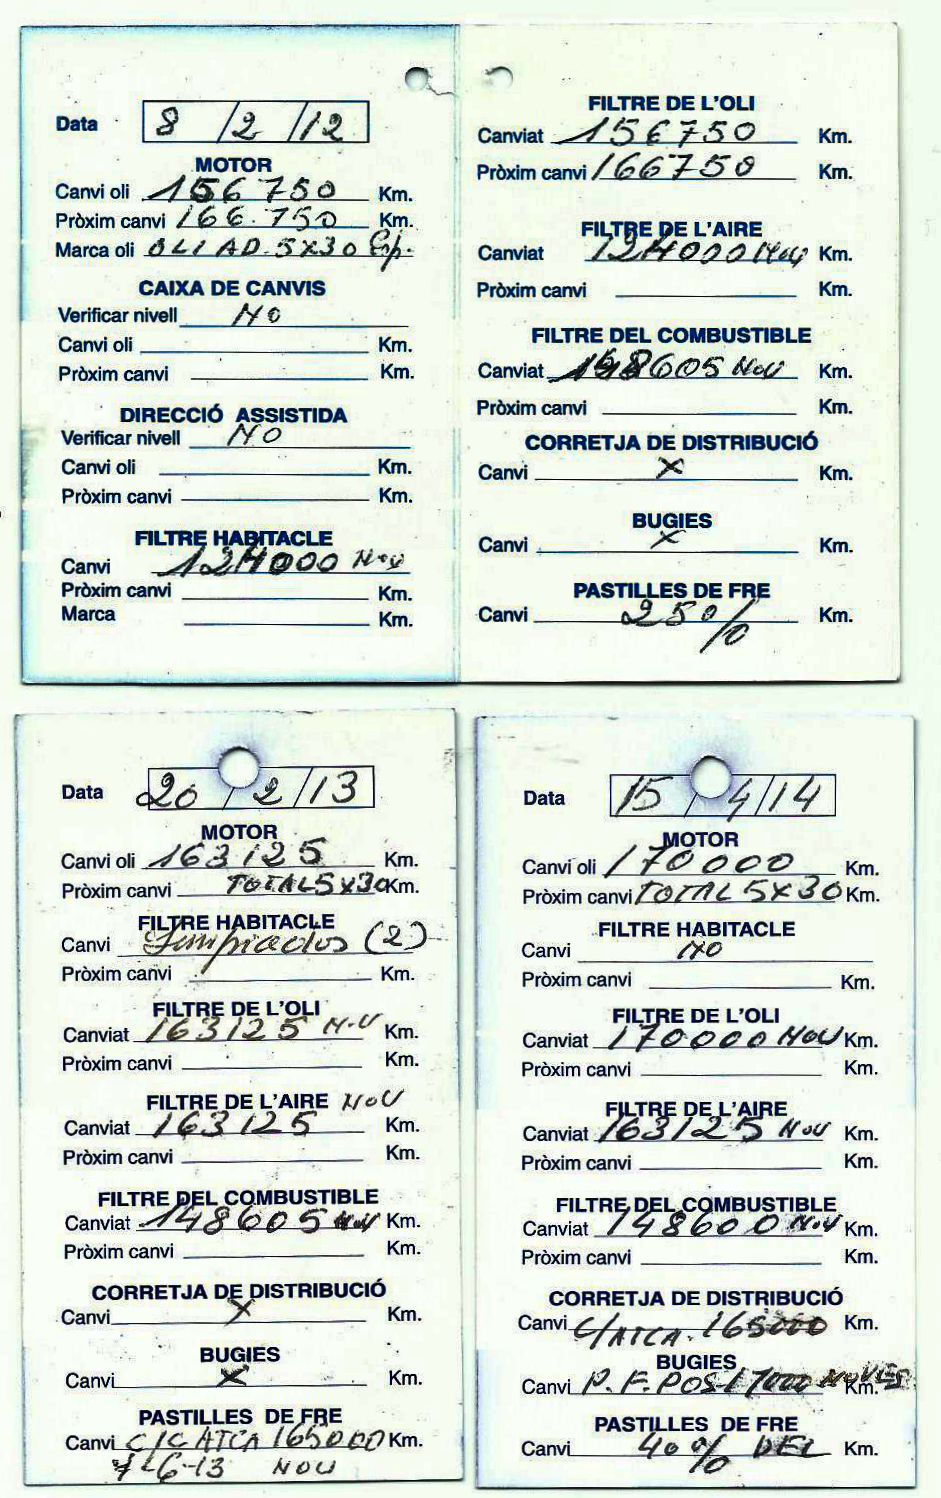 Data 8 / 2 / 12
MOTOR
Canvi oli 156750 Km.
Pròxim canvi 166.750 Km.
Marca oli OLI AD. 5X30 Esp.
CAIXA DE CANVIS
Verificar nivell NO
Canvi oli Km.
Pròxim canvi Km.
DIRECCIÓ ASSISTIDA
Verificar nivell NO
Canvi oli Km.
Pròxim canvi Km.
FILTRE HABITACLE
Canvi 124000 Nou
Pròxim canvi Km.
Marca Km.
FILTRE DE L'OLI
Canviat 156750 Km.
Pròxim canvi 166750 Km.
FILTRE DE L'AIRE
Canviat 124000 Nou Km.
Pròxim canvi Km.
FILTRE DEL COMBUSTIBLE
Canviat 148605 NOU Km.
Pròxim canvi Km.
CORRETJA DE DISTRIBUCIÓ
Canvi X Km.
BUGIES
Canvi X Km.
PASTILLES DE FRE
Canvi 25% Km.
Data 20 / 2 / 13
MOTOR
Canvi oli 163125 Km.
Pròxim canvi TOTAL 5X30 Km.
FILTRE HABITACLE
Canvi Limpiados (2)
Pròxim canvi Km.
FILTRE DE L'OLI
Canviat 163125 NOU Km.
Pròxim canvi Km.
FILTRE DE L'AIRE NOU
Canviat 163125 Km.
Pròxim canvi Km.
FILTRE DEL COMBUSTIBLE
Canviat 148605 NOU Km.
Pròxim canvi Km.
CORRETJA DE DISTRIBUCIÓ
Canvi X Km.
BUGIES
Canvi X Km.
PASTILLES DE FRE
Canvi C/C ATCA 165000 Km.
7-6-13 NOU
Data 15 / 4 / 14
MOTOR
Canvi oli 170000 Km.
Pròxim canvi TOTAL 5X30 Km.
FILTRE HABITACLE
Canvi NO
Pròxim canvi Km.
FILTRE DE L'OLI
Canviat 170000 NOU Km.
Pròxim canvi Km.
FILTRE DE L'AIRE
Canviat 163125 NOU Km.
Pròxim canvi Km.
FILTRE DEL COMBUSTIBLE
Canviat 148600 NOU Km.
Pròxim canvi Km.
CORRETJA DE DISTRIBUCIÓ
Canvi C/ATCA. 165000 Km.
BUGIES
Canvi P. F. POS. NOVES Km.
PASTILLES DE FRE
Canvi 40% DEL Km.